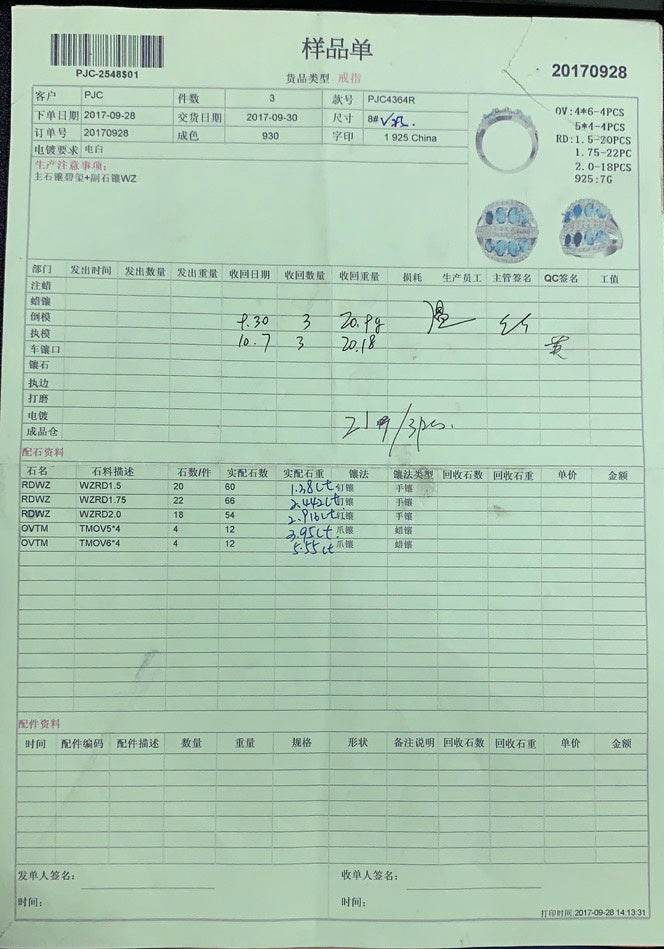 样品单
PJC-2548$01
货品类型 戒指
20170928
客户 PJC 件数 3 款号 PJC4364R
下单日期 2017-09-28 交货日期 2017-09-30 尺寸 8#
订单号 20170928 成色 930 字印 1 925 China
电镀要求 电白
OV:4*6-4PCS
5*4-4PCS
RD:1.5-20PCS
1.75-22PC
2.0-18PCS
925:7G
生产注意事项:
主石镶碧玺+副石镶WZ
部门 发出时间 发出数量 发出重量 收回日期 收回数量 收回重量 损耗 生产员工 主管签名 QC签名 工值
注蜡
蜡镶
倒模 9.30 3 20.9g
执模 10.7 3 20.18
车镶口 黄
镶石
执边
打磨
电镀
成品仓 /3pcs.
配石资料
石名 石料描述 石数/件 实配石数 实配石重 镶法 镶法类型 回收石数 回收石重 单价 金额
RDWZ WZRD1.5 20 60 1.38ct 钉镶 手镶
RDWZ WZRD1.75 22 66 2.442ct 钉镶 手镶
RDWZ WZRD2.0 18 54 2.916ct 钉镶 手镶
OVTM TMOV5*4 4 12 3.95ct 爪镶 蜡镶
OVTM TMOV6*4 4 12 5.55ct 爪镶 蜡镶
配件资料
时间 配件编码 配件描述 数量 重量 规格 形状 备注说明 回收石数 回收石重 单价 金额
发单人签名: 收单人签名:
时间: 时间:
打印时间 2017-09-28 14:13:31